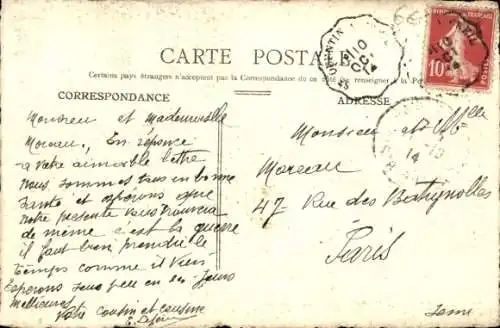 CARTE POSTALE
Certains pays étrangers n'acceptent pas la Correspondance de ce côté
CORRESPONDANCE
ADRESSE
Monsieur et Mademoiselle
Moreau, En réponse
a votre aimable lettre
nous sommes tous en bonne
santé et espérons que
notre présente vous trouvera
de même c'est la guerre
il faut bien prendre le
temps comme il vient
Espérons sous peu en des jours
meilleures
Votre cousin et cousine
Monsieur et Mlle
Moreau
47 Rue des Batignolles
Paris
Seine
QUENTIN
10